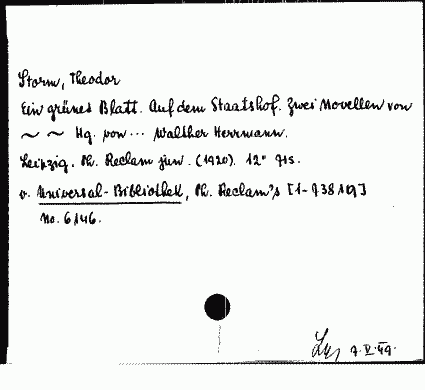 Storm, Theodor
Ein grünes Blatt. Auf dem Staatshof. Zwei Novellen von
~ ~ Hg. von ... Walther Herrmann.
Leipzig. Ph. Reclam jun. (1920). 12°
v. Universal-Bibliothek, Ph. Reclam's
No. 6146.